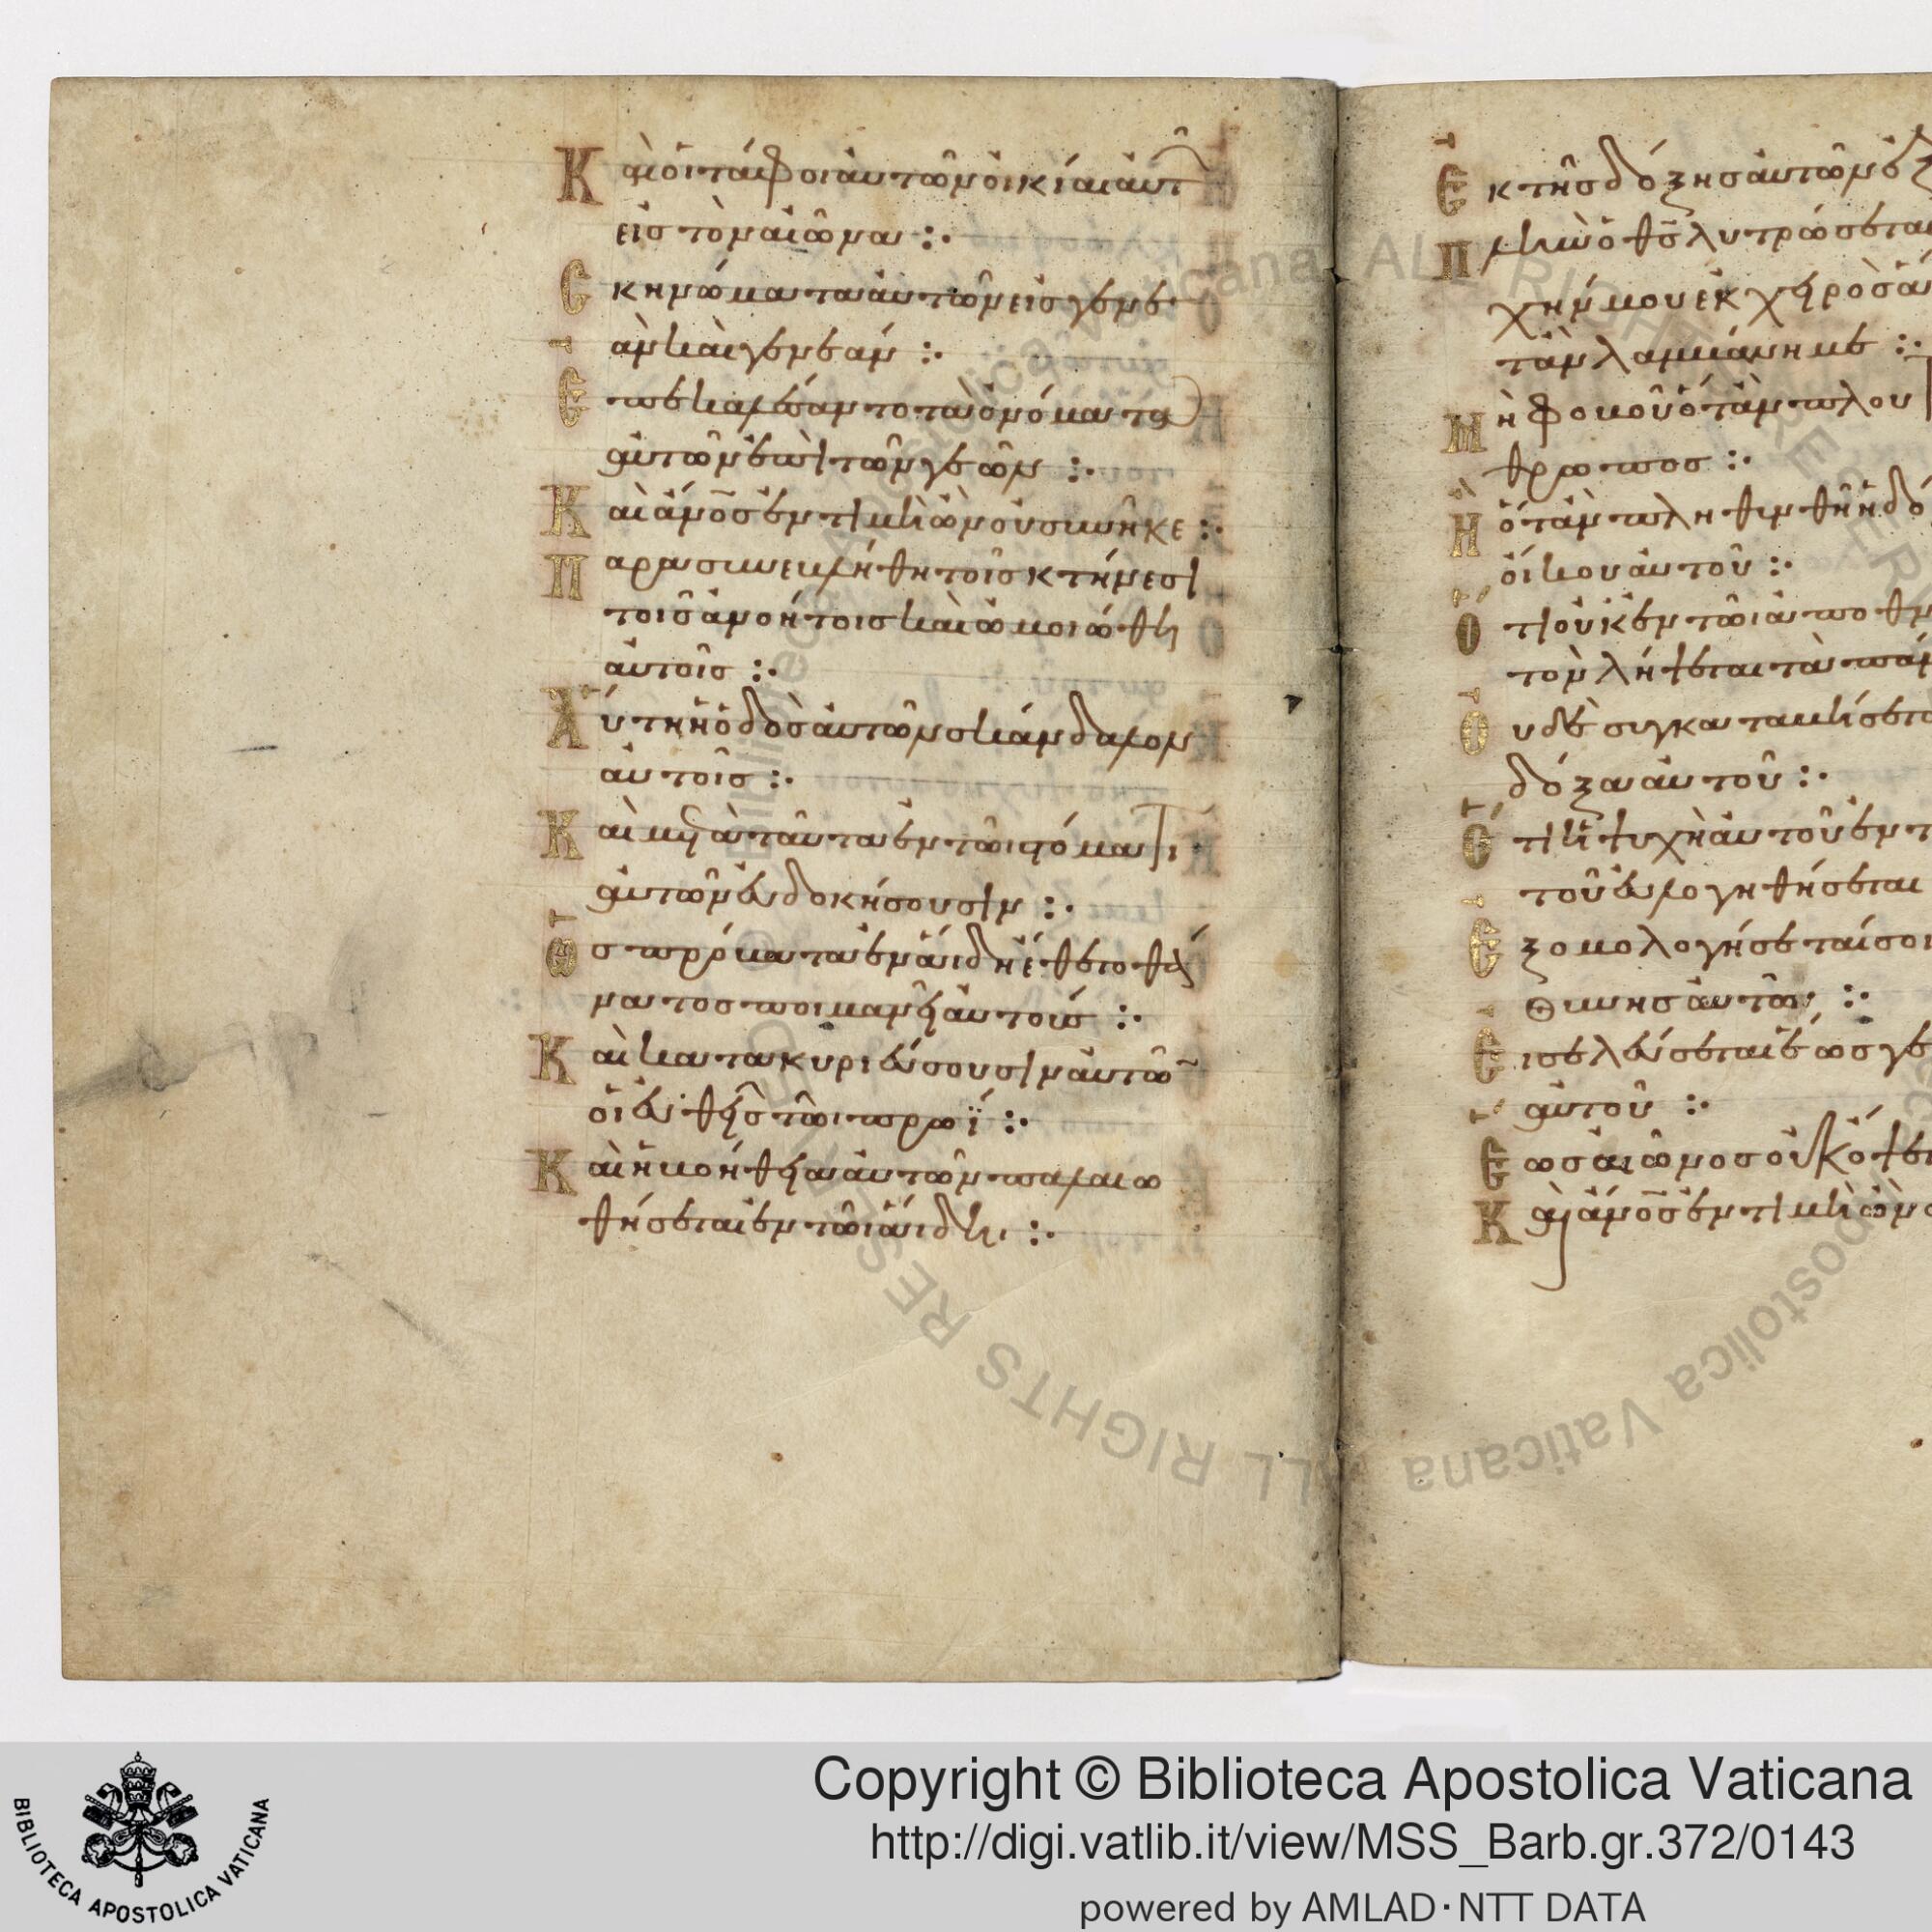 Καὶ οἱ τάφοι αὐτῶν οἰκίαι αὐτῶ
εἰς τὸν αἰῶνα :·
Σκηνώματα αὐτῶν εἰς γενε
ὰν καὶ γενεάν :·
Ἐπεκαλέσαντο τὰ ὀνόματα
αὐτῶν ἐπὶ τῶν γεῶν :·
Καὶ ἄνος ἐν τιμῆ ὢν οὐ συνῆκε :·
Παρασυνεβλήθη τοῖς κτήνεσι
τοῖς ἀνοήτοις καὶ ὡμοιώθη
αὐτοῖς :·
Αὕτη ἡ ὁδὸς αὐτῶν σκάνδαλον
αὐτοῖς :·
Καὶ μετὰ ταῦτα ἐν τῶι στόματι
αὐτῶν εὐδοκήσουσιν :·
Ὡς πρόβατα ἐν ἅιδη ἔθετο θά
νατος ποιμανεῖ αὐτούς :·
Καὶ κατακυριεύσουσιν αὐτῶ
οἱ εὐθεῖς τῶι πρωΐ :·
Καὶ ἡ βοήθεια αὐτῶν παλαιω
θήσεται ἐν τῶι ἅιδηι :·
Ἐκ τῆς δόξης αὐτῶν ἐξ
Πλὴν ὁ θς λυτρώσεται
χήν μου ἐκ χειρὸς ἅ
ταν λαμβάνη με :·
Μὴ φοβοῦ ὅταν πλου
θρωπος :·
Ἢ ὅταν πληθυνθῆ ἡ δό
οἴκου αὐτοῦ :·
Ὅτι οὐκ ἐν τῶι ἀποθν
τὸν λήψεται τὰ πάν
Οὐδὲ συγκαταβήσετα
δόξα αὐτοῦ :·
Ὅτι ἡ ψυχὴ αὐτοῦ ἐν τ
τοῦ εὐλογηθήσεται
Ἐξομολογήσεταί σοι
θύνης αὐτῶ :·
Εἰσελεύσεται ἕως γε
αὐτοῦ :·
Ἕως αἰῶνος οὐκ ὄψε
Καὶ ἄνος ἐν τιμῆ ὢν ο
Copyright © Biblioteca Apostolica Vaticana
http://digi.vatlib.it/view/MSS_Barb.gr.372/0143
powered by AMLAD·NTT DATA
BIBLIOTECA APOSTOLICA VATICANA